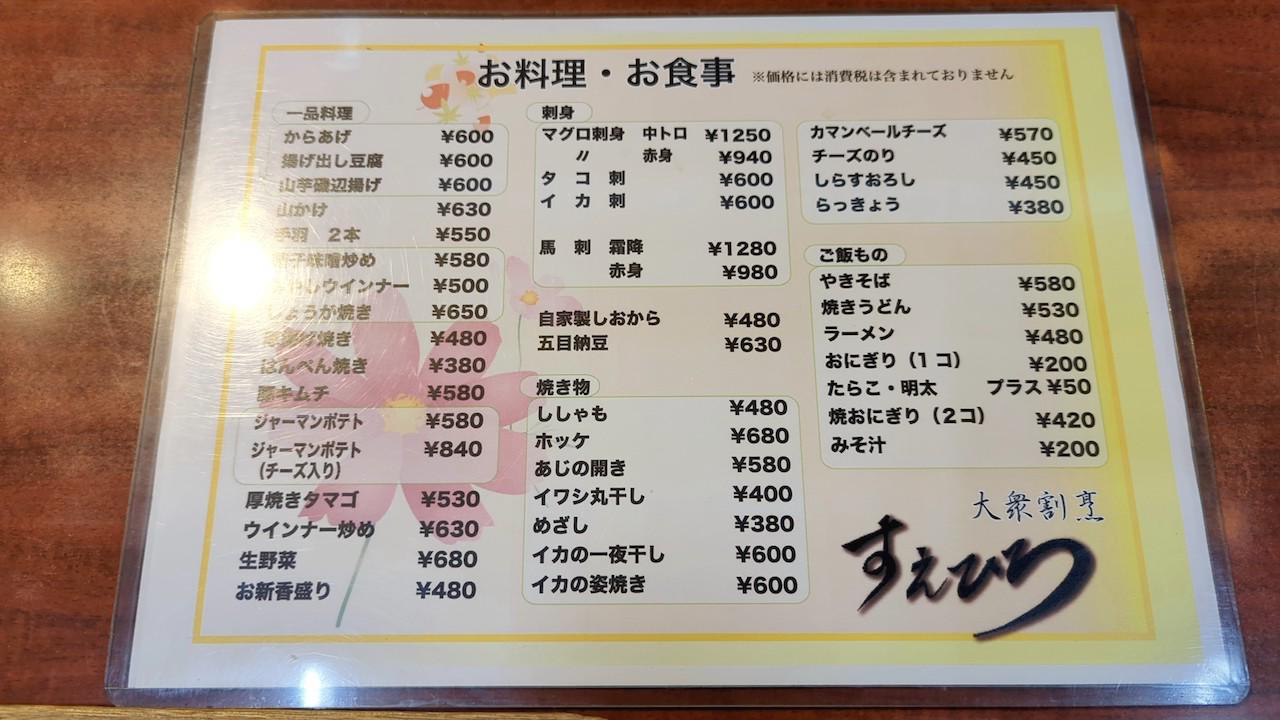 お料理・お食事 ※価格には消費税は含まれておりません
一品料理
からあげ ¥600
揚げ出し豆腐 ¥600
山芋磯辺揚げ ¥600
山かけ ¥630
手羽 2本 ¥550
味噌炒め ¥580
ウインナー ¥500
しょうが焼き ¥650
焼き ¥480
はんぺん焼き ¥380
豚キムチ ¥580
ジャーマンポテト ¥580
ジャーマンポテト ¥840
(チーズ入り)
厚焼きタマゴ ¥530
ウインナー炒め ¥630
生野菜 ¥680
お新香盛り ¥480
刺身
マグロ刺身 中トロ ¥1250
〃 赤身 ¥940
タコ刺 ¥600
イカ刺 ¥600
馬刺 霜降 ¥1280
赤身 ¥980
自家製しおから ¥480
五目納豆 ¥630
焼き物
ししゃも ¥480
ホッケ ¥680
あじの開き ¥580
イワシ丸干し ¥400
めざし ¥380
イカの一夜干し ¥600
イカの姿焼き ¥600
カマンベールチーズ ¥570
チーズのり ¥450
しらすおろし ¥450
らっきょう ¥380
ご飯もの
やきそば ¥580
焼きうどん ¥530
ラーメン ¥480
おにぎり(1コ) ¥200
たらこ・明太 プラス¥50
焼おにぎり(2コ) ¥420
みそ汁 ¥200
大衆割烹
すえひろ